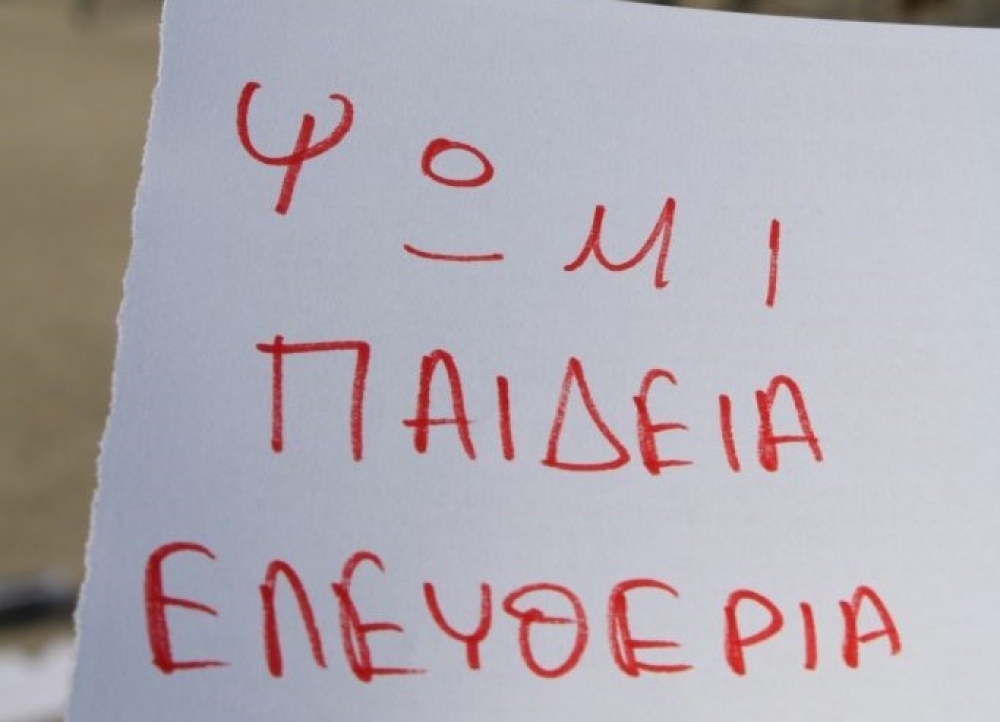 ΨΩΜΙ
ΠΑΙΔΕΙΑ
ΕΛΕΥΘΕΡΙΑ